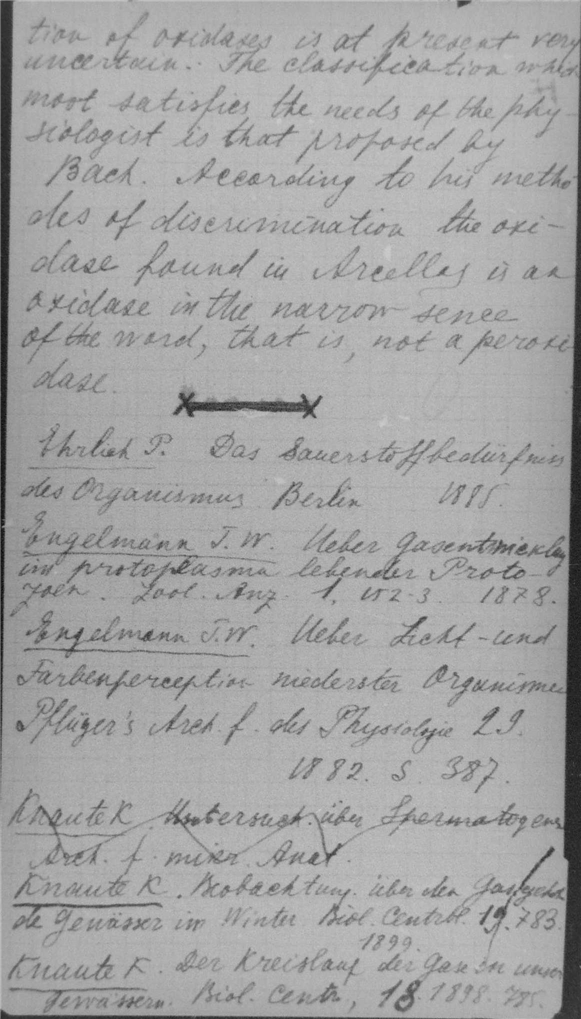 tion of oxidases is at present very
uncertain. The classification which
most satisfies the needs of the phy-
siologist is that proposed by
Bach. According to his metho
des of discrimination the oxi-
dase found in Arcellas is an
oxidase in the narrow sence
of the word, that is, not a peroxi
dase.
Ehrlich P. Das Sauerstoffbedürfniss
des Organismus Berlin 1885.
Engelmann T. W. Ueber Gasentwicklg
im protoplasma lebender Proto-
zoen. Zool. Anz. 1, 152-3. 1878.
Engelmann T. W. Ueber Licht- und
Farbenperception niederster Organismen
Pflüger's Arch. f. des Physiologie 29.
1882. S. 387.
Knaute K. Untersuch. über Spermatogens
Arch. f. mikr. Anat.
Knaute K. Beobachtung. über den
de Gewässer im Winter Biol. Centrbl. 19. 783.
1899.
Knaute K. Der Kreislauf der Gase in unser
Gewässern. Biol. Centr, 18. 1898. 785.